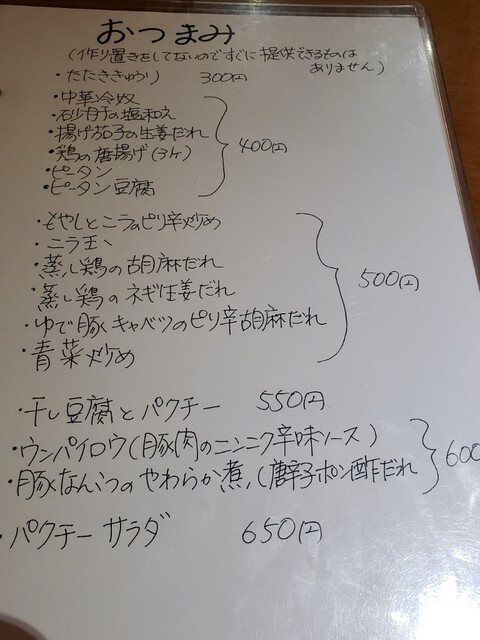 おつまみ
(作り置きをしてないのですぐに提供できるものは
ありません)
・たたききゅうり 300円
・中華冷奴
・砂肝の塩和え
・揚げ茄子の生姜だれ
・鶏の唐揚げ(3ケ)
・ピータン
・ピータン豆腐
400円
・もやしとニラのピリ辛炒め
・ニラ玉
・蒸し鶏の胡麻だれ
・蒸し鶏のネギ生姜だれ
・ゆで豚キャベツのピリ辛胡麻だれ
・青菜炒め
500円
・干し豆腐とパクチー 550円
・ウンパイロウ(豚肉のニンニク辛味ソース)
・豚なんこつのやわらか煮(唐辛子ポン酢だれ
600
・パクチーサラダ 650円